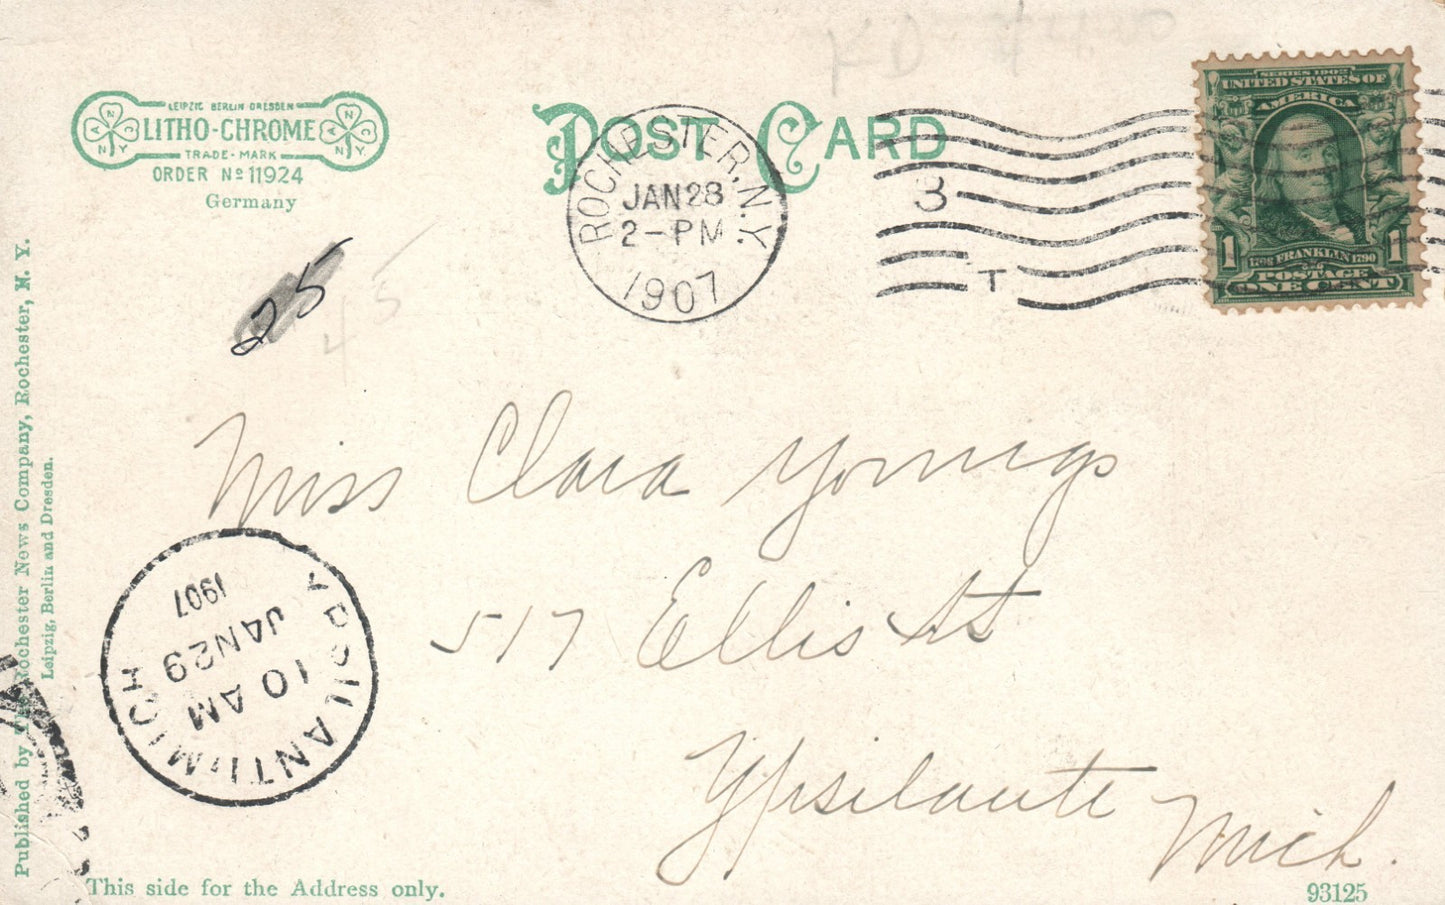 LEIPZIG BERLIN DRESDEN
LITHO-CHROME
TRADE-MARK
ORDER Nº 11924
Germany
ANC NY
ANC NY
POST CARD
ROCHESTER, N.Y.
JAN 28
2-PM
1907
3
T
SERIES 1902
UNITED STATES OF
AMERICA
1
1706 FRANKLIN 1790
POSTAGE
ONE CENT
25
45
Miss Clara Youngs
517 Ellis St
Ypsilante
Mich.
YPSILANTI, MICH
10 AM
JAN 29
1907
Published by The Rochester News Company, Rochester, N. Y.
Leipzig, Berlin and Dresden.
This side for the Address only.
93125